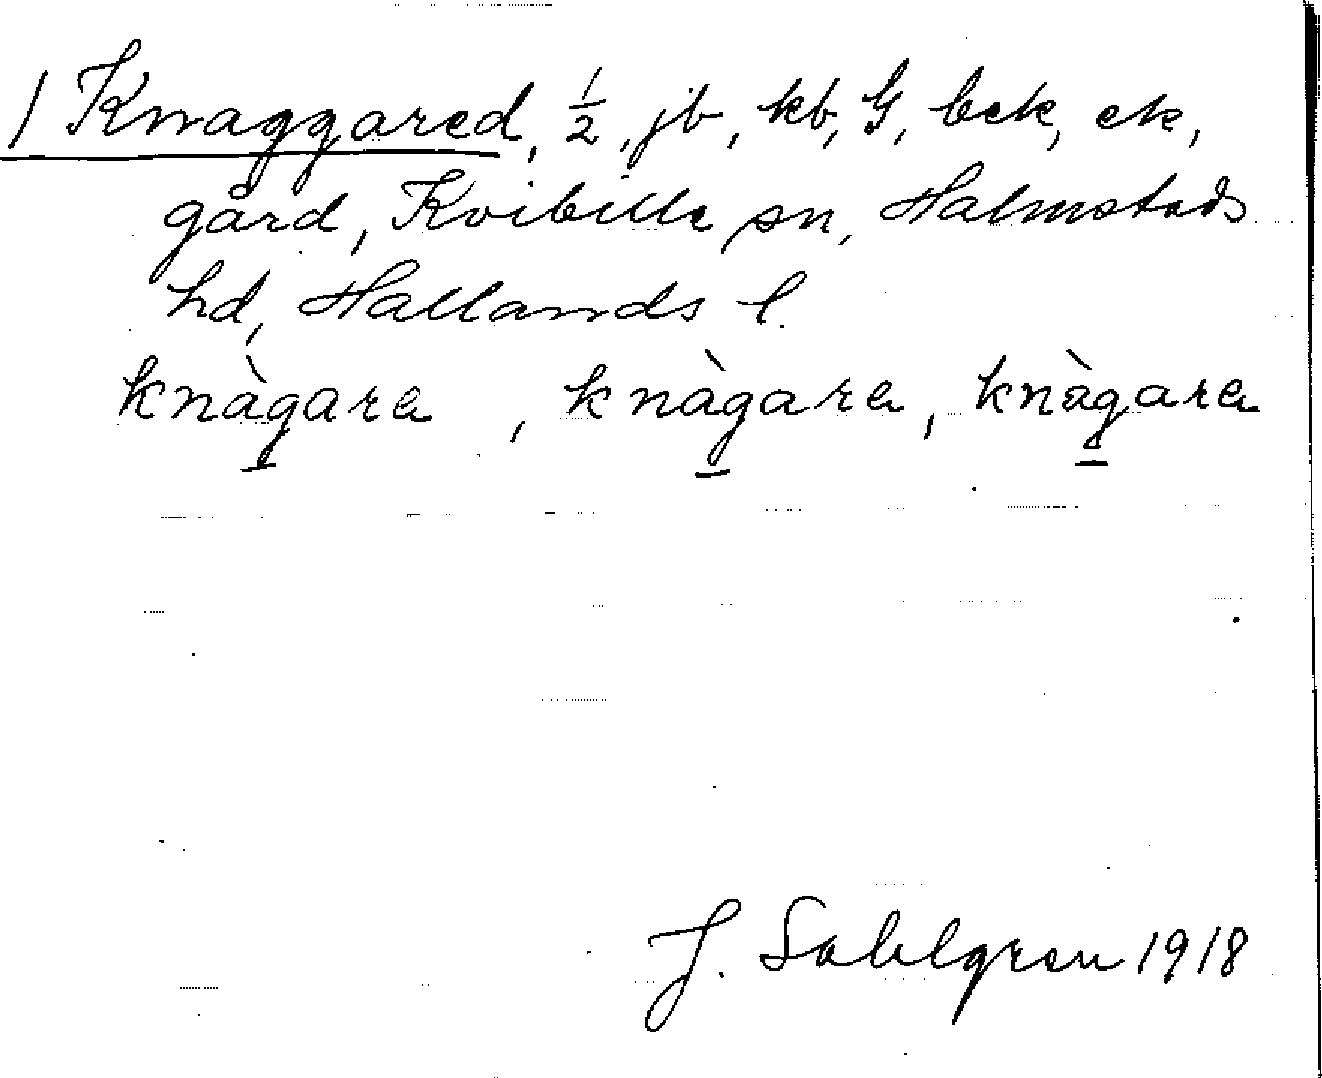 1 Knaggared, ½, jb, kb, G, bek, ek,
gård, Kvibille sn, Halmstads
hd, Hallands l.
knàgarɐ, knàgarɐ, knàgarɐ
J. Sahlgren 1918